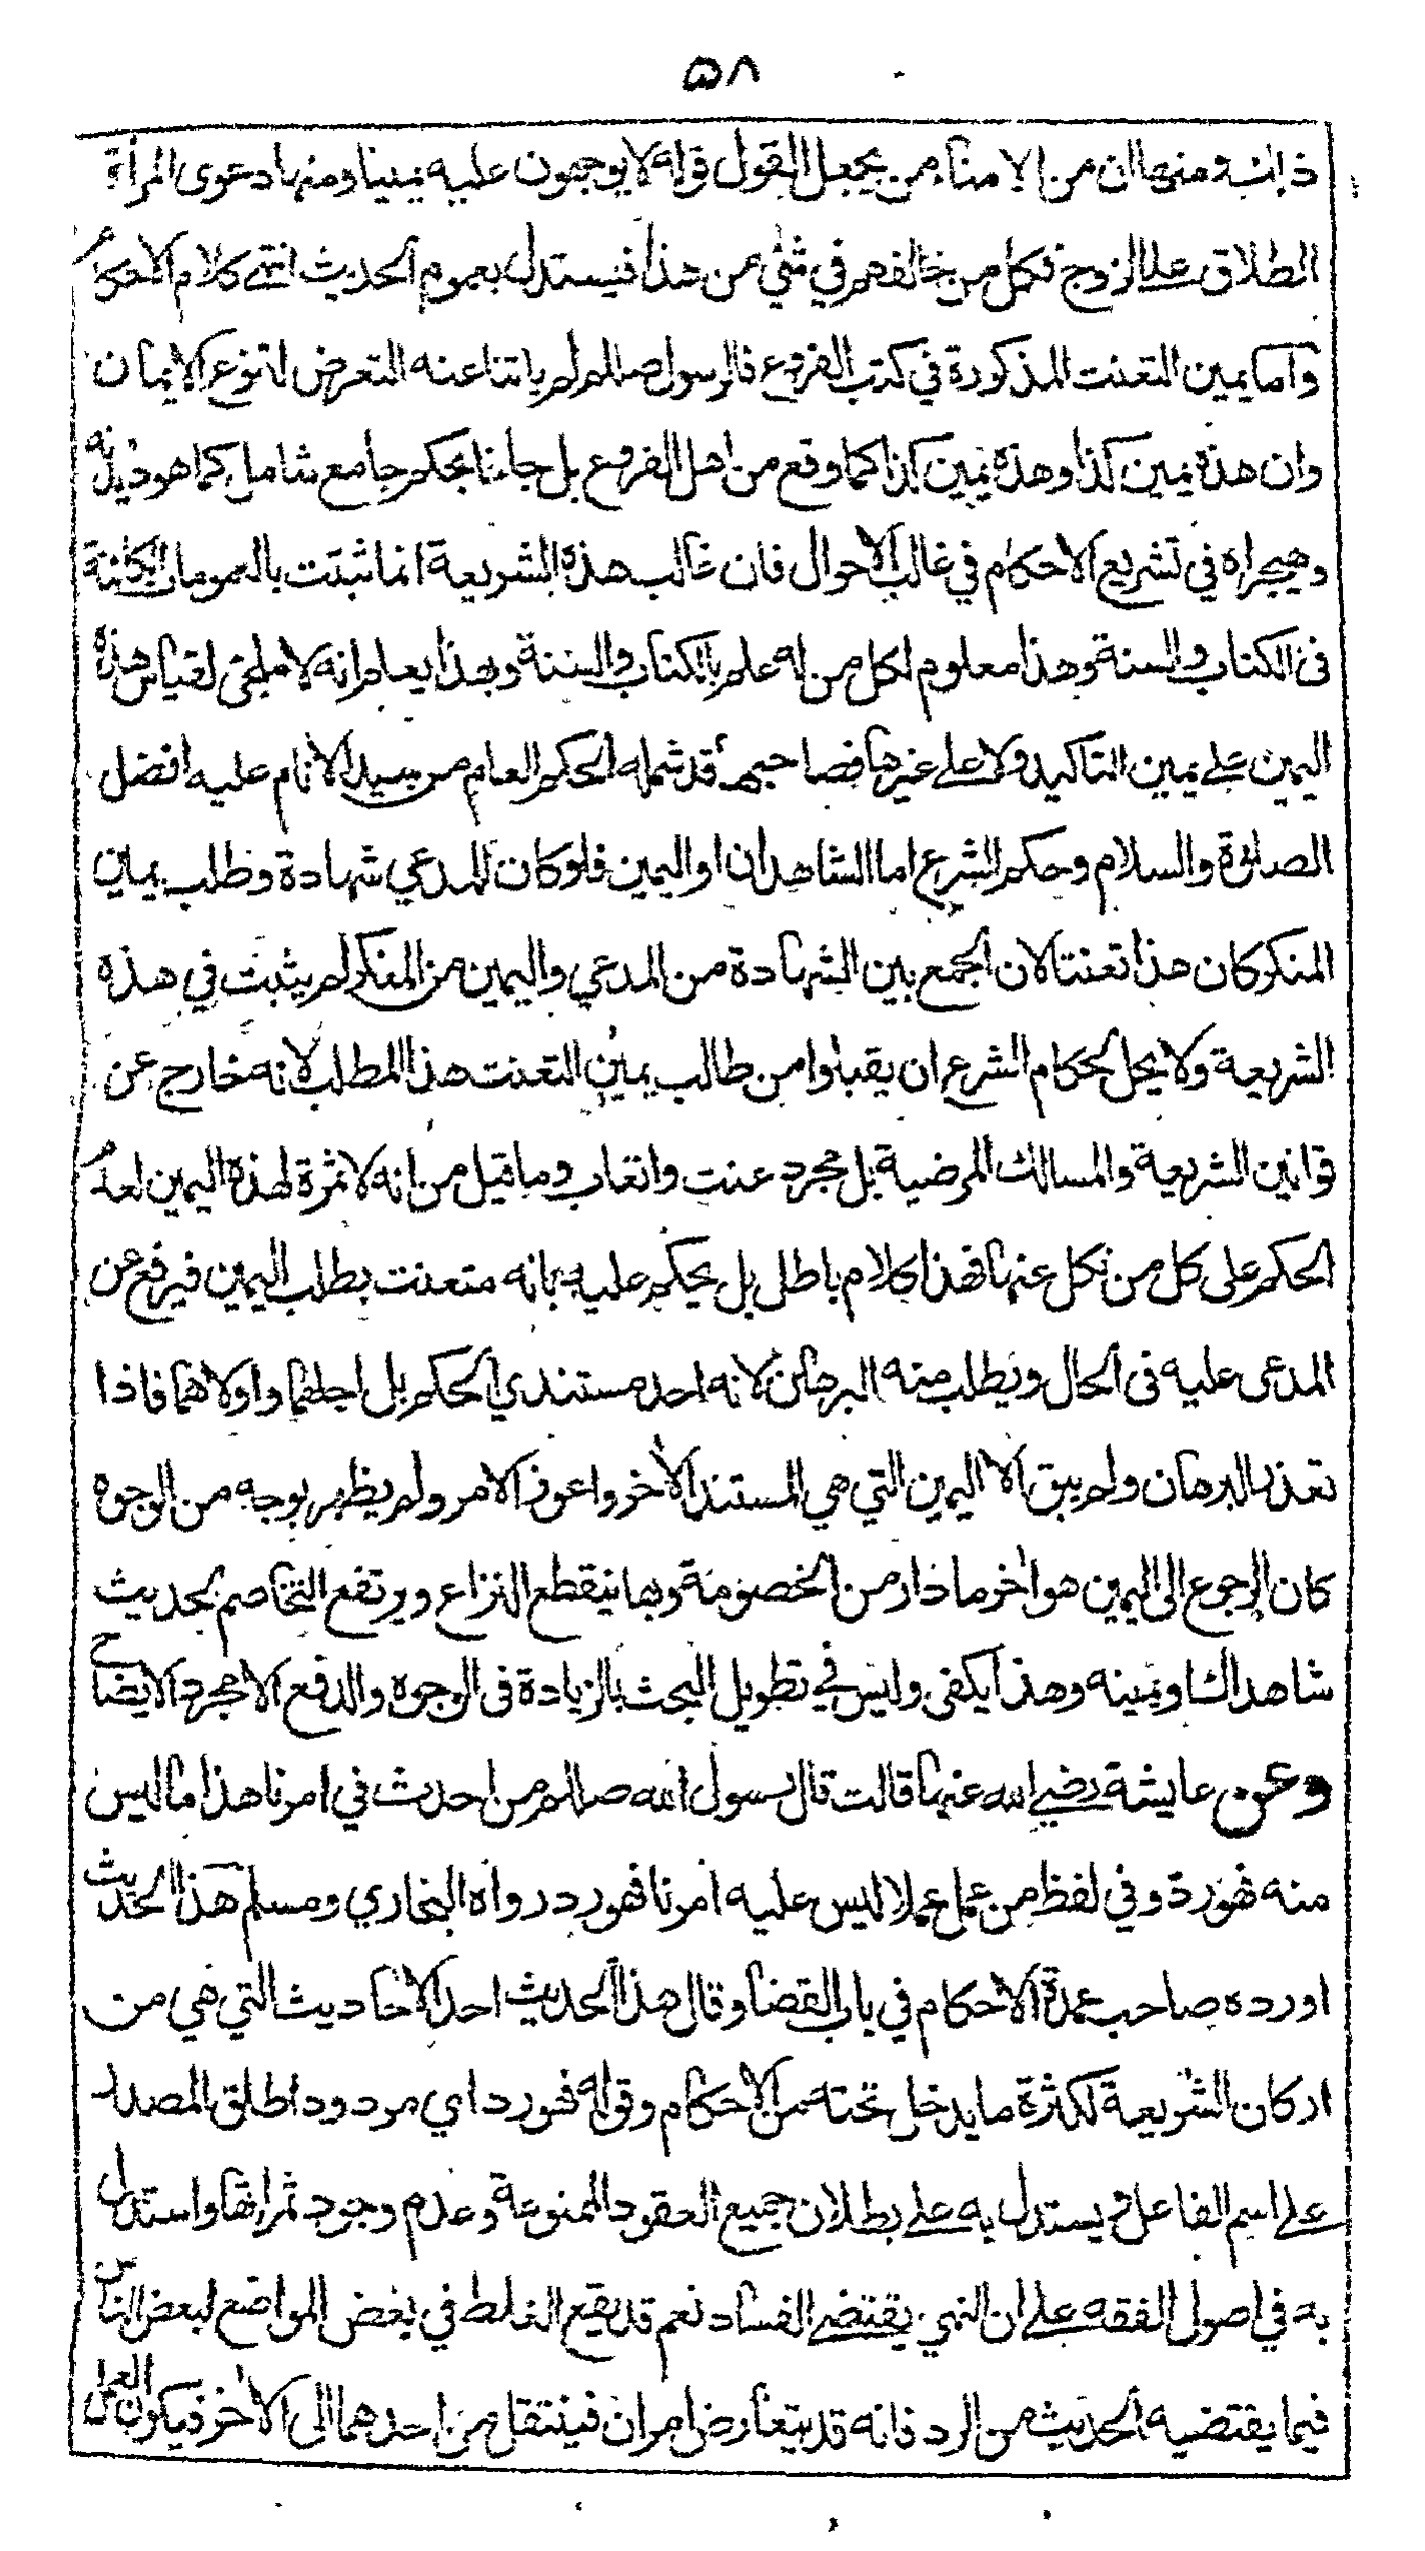 ٥٨
ذلك ومنها ان من الامناء من يجعل القول قوله لا يوجبون عليه يمينا ومنها دعوى المرأة
الطلاق على الزوج فكل من خالفهم في شئ من هذا فيستدل بعموم الحديث انتهى كلام الاحكام
واما يمين التعنت المذكورة في كتب الفروع فالرسول صللم لم ياتنا عنه التعرض لتنوع الايمان
وان هذة يمين كذا وهذة يمين كذا كما وقع من اهل الفروع بل جاءنا بحكم جامع شامل كما هو ديدنه
وهجيراه في تشريع الاحكام في غالب الاحوال فان غالب هذة الشريعة انما ثبتت بالعمومات الكائنة
في الكتاب والسنة وهذا معلوم لكل من له علم بالكتاب والسنة وبهذا يعلم انه لا ملجئ لقياس هذة
اليمين على يمين التاكيد ولا على غيرها فصاحبها قد شمله الحكم العام من سيد الانام عليه افضل
الصلوة والسلام وحكم الشرع اما الشاهدان او اليمين فلو كان للمدعي شهادة وطلب يمين
المنكر كان هذا تعنتا لان الجمع بين الشهادة من المدعي واليمين من المنكر لم يثبت في هذه
الشريعة ولا يحل لحكام الشرع ان يقبلوا من طالب يمين التعنت هذا المطلب لانه خارج عن
قوانين الشريعة والمسالك المرضية بل مجرد عنت واتعاب وما قيل من انه لا ثمرة لهذة اليمين لعدم
الحكم على كل من نكل عنها فهذا كلام باطل بل يحكم عليه بانه متعنت بطلب اليمين فيرفع عن
المدعى عليه فى الحال ويطلب منه البرهان لانه احد مستندي الحكم بل اجلهما واولاهما فاذا
تعذر البرهان ولم يبق الا اليمين التي هي المستند الأخر واعوز الامر ولم يظهر بوجه من الوجوه
كان الرجوع الى اليمين هو اخر ما دار من الخصومة وبها ينقطع النزاع ويرتفع التخاصم بحديث
شاهداك او يمينه وهذا يكفى وليس في تطويل البحث بالزيادة فى الوجوه والدفع الا مجرد الايضاح
وعن عايشة رضي الله عنها قالت قال رسول الله صللم من احدث في امرنا هذا ما ليس
منه فهو رد وفي لفظ من عمل عملا ليس عليه امرنا فهو رد رواه البخاري ومسلم هذا الحديث
اورده صاحب عمدة الاحكام في باب القضا وقال هذا الحديث احد الاحاديث التي هي من
اركان الشريعة لكثرة ما يدخل تحته من الاحكام وقوله فهو رد اي مردود اطلق المصدر
على اسم الفاعل ويستدل به على بطلان جميع العقود الممنوعة وعدم وجود ثمراتها واستدل
به في اصول الفقه على ان النهي يقتضي الفساد نعم قد يقع الغلط في بعض المواضع لبعض الناس
فيما يقتضيه الحديث من الرد فانه قد يتعارض امران فينتقل من احدهما الى الأخر فيكون العمل